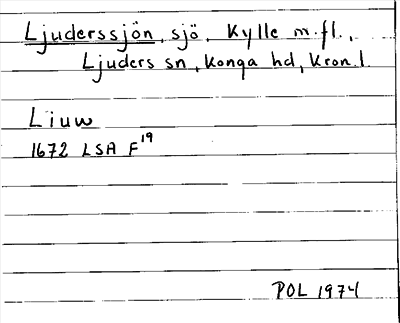 Ljuderssjön, sjö, Kylle m.fl.,
Ljuders sn, Konga hd, Kron.l.
Liuw
1672 LSA F19
POL 1974